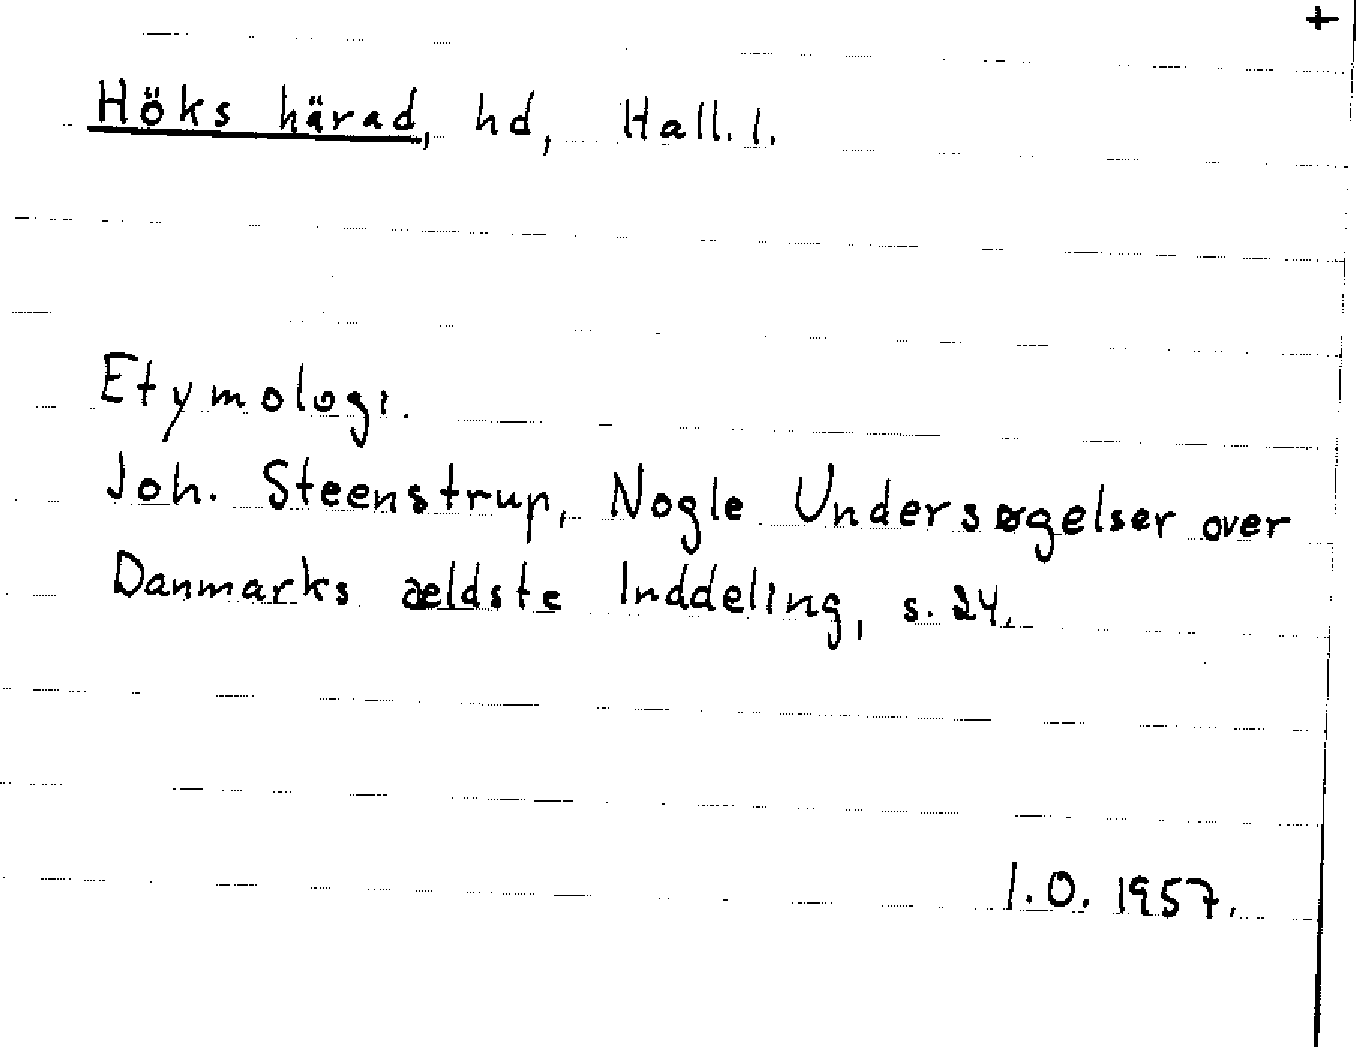 +
Höks härad, hd, Hall. l.
Etymologi.
Joh. Steenstrup, Nogle Undersøgelser over
Danmarks ældste Inddeling, s. 24.
I.O. 1957.